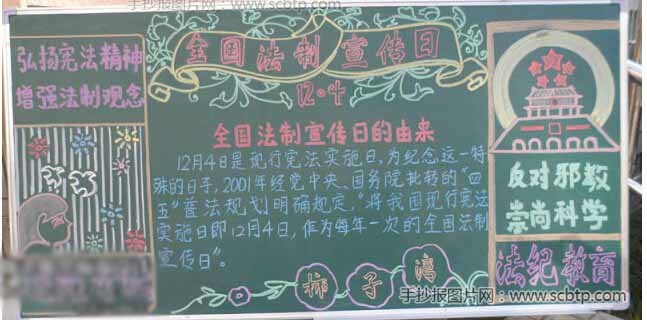 手抄报图片网：www.scbtp.com
弘扬宪法精神
增强法制观念
全国法制宣传日
12·4
全国法制宣传日的由来
12月4日是现行宪法实施日，为纪念这一特
殊的日子，2001年经党中央、国务院批转的“四
五”普法规划明确规定，“将我国现行宪法
实施日即12月4日，作为每年一次的全国法制
宣传日”。
柿子湾
反对邪教
崇尚科学
法纪教育
手抄报图片网：www.scbtp.com